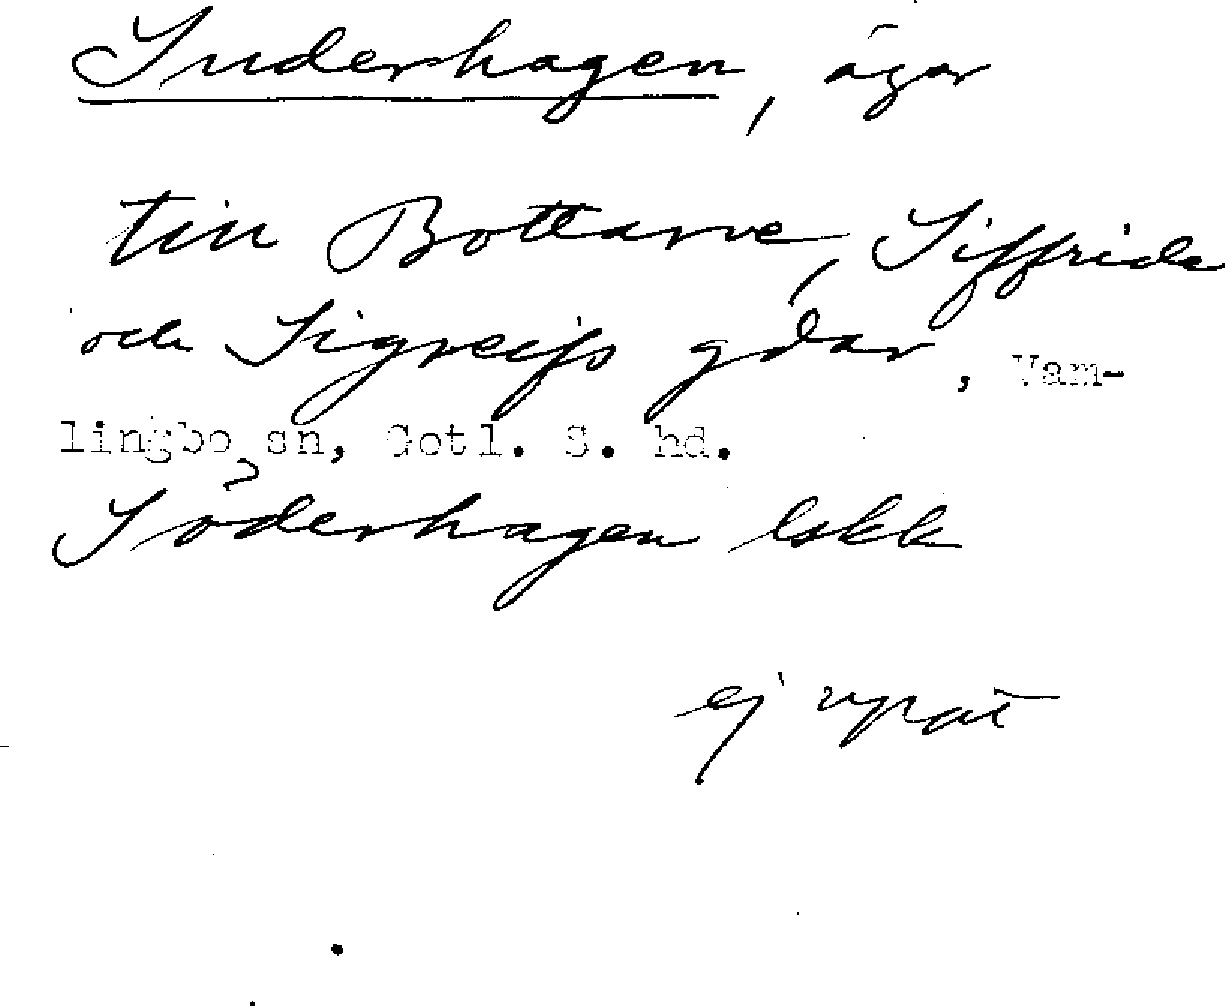 Suderhagen, ägor
till Bottarve, Siffride
och Sigreifs gdar, Vam-
lingbo sn, Gotl. S. hd.
Söderhagen lskk
ej upat